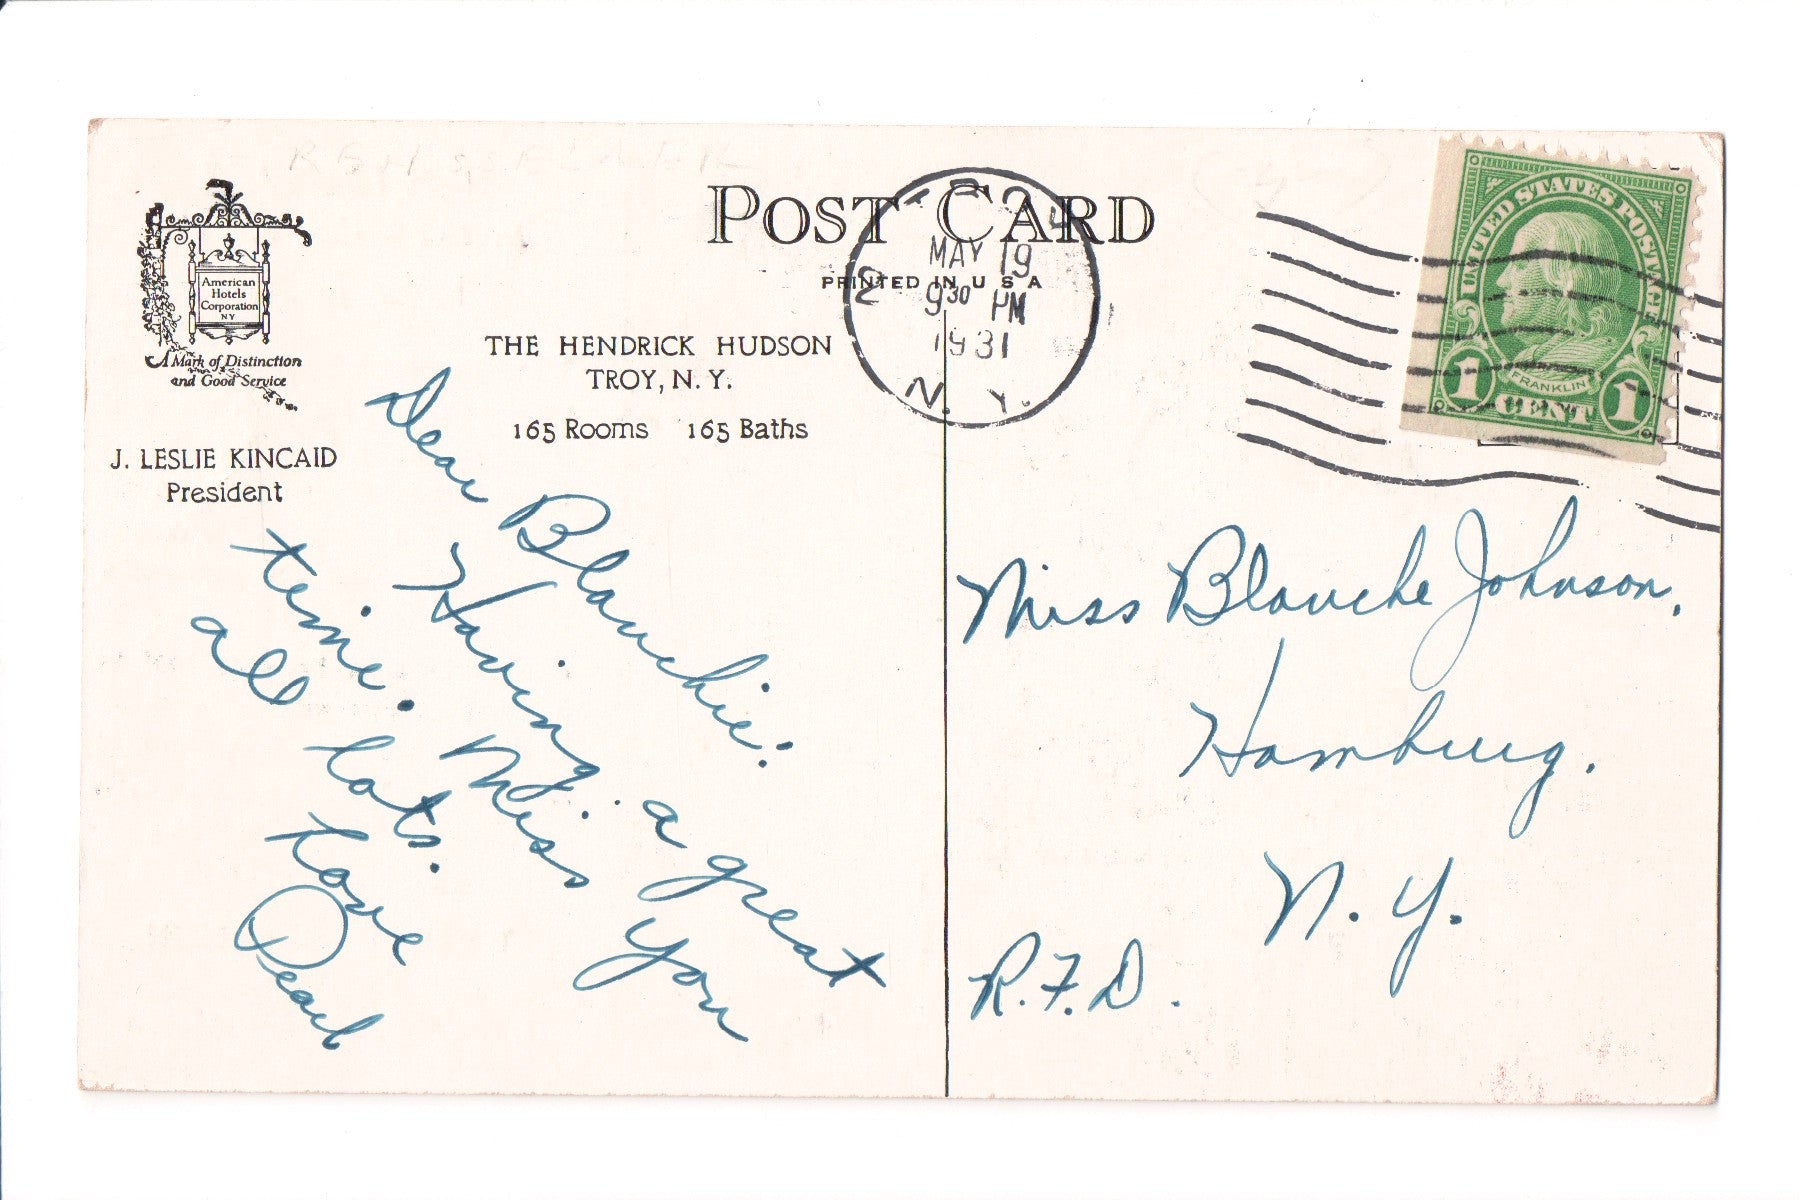 POST CARD
PRINTED IN U S A
American
Hotels
Corporation
NY
A Mark of Distinction
and Good Service
J. LESLIE KINCAID
President
THE HENDRICK HUDSON
TROY, N. Y.
165 Rooms 165 Baths
MAY 19
9 30 PM
1931
N. Y.
UNITED STATES POSTAGE
FRANKLIN
1 CENT 1
Dear Blanchie:
Having a great
time. Miss you
all lots.
Love
Pearl
Miss Blanche Johnson,
Hamburg.
N. Y.
R.F.D.